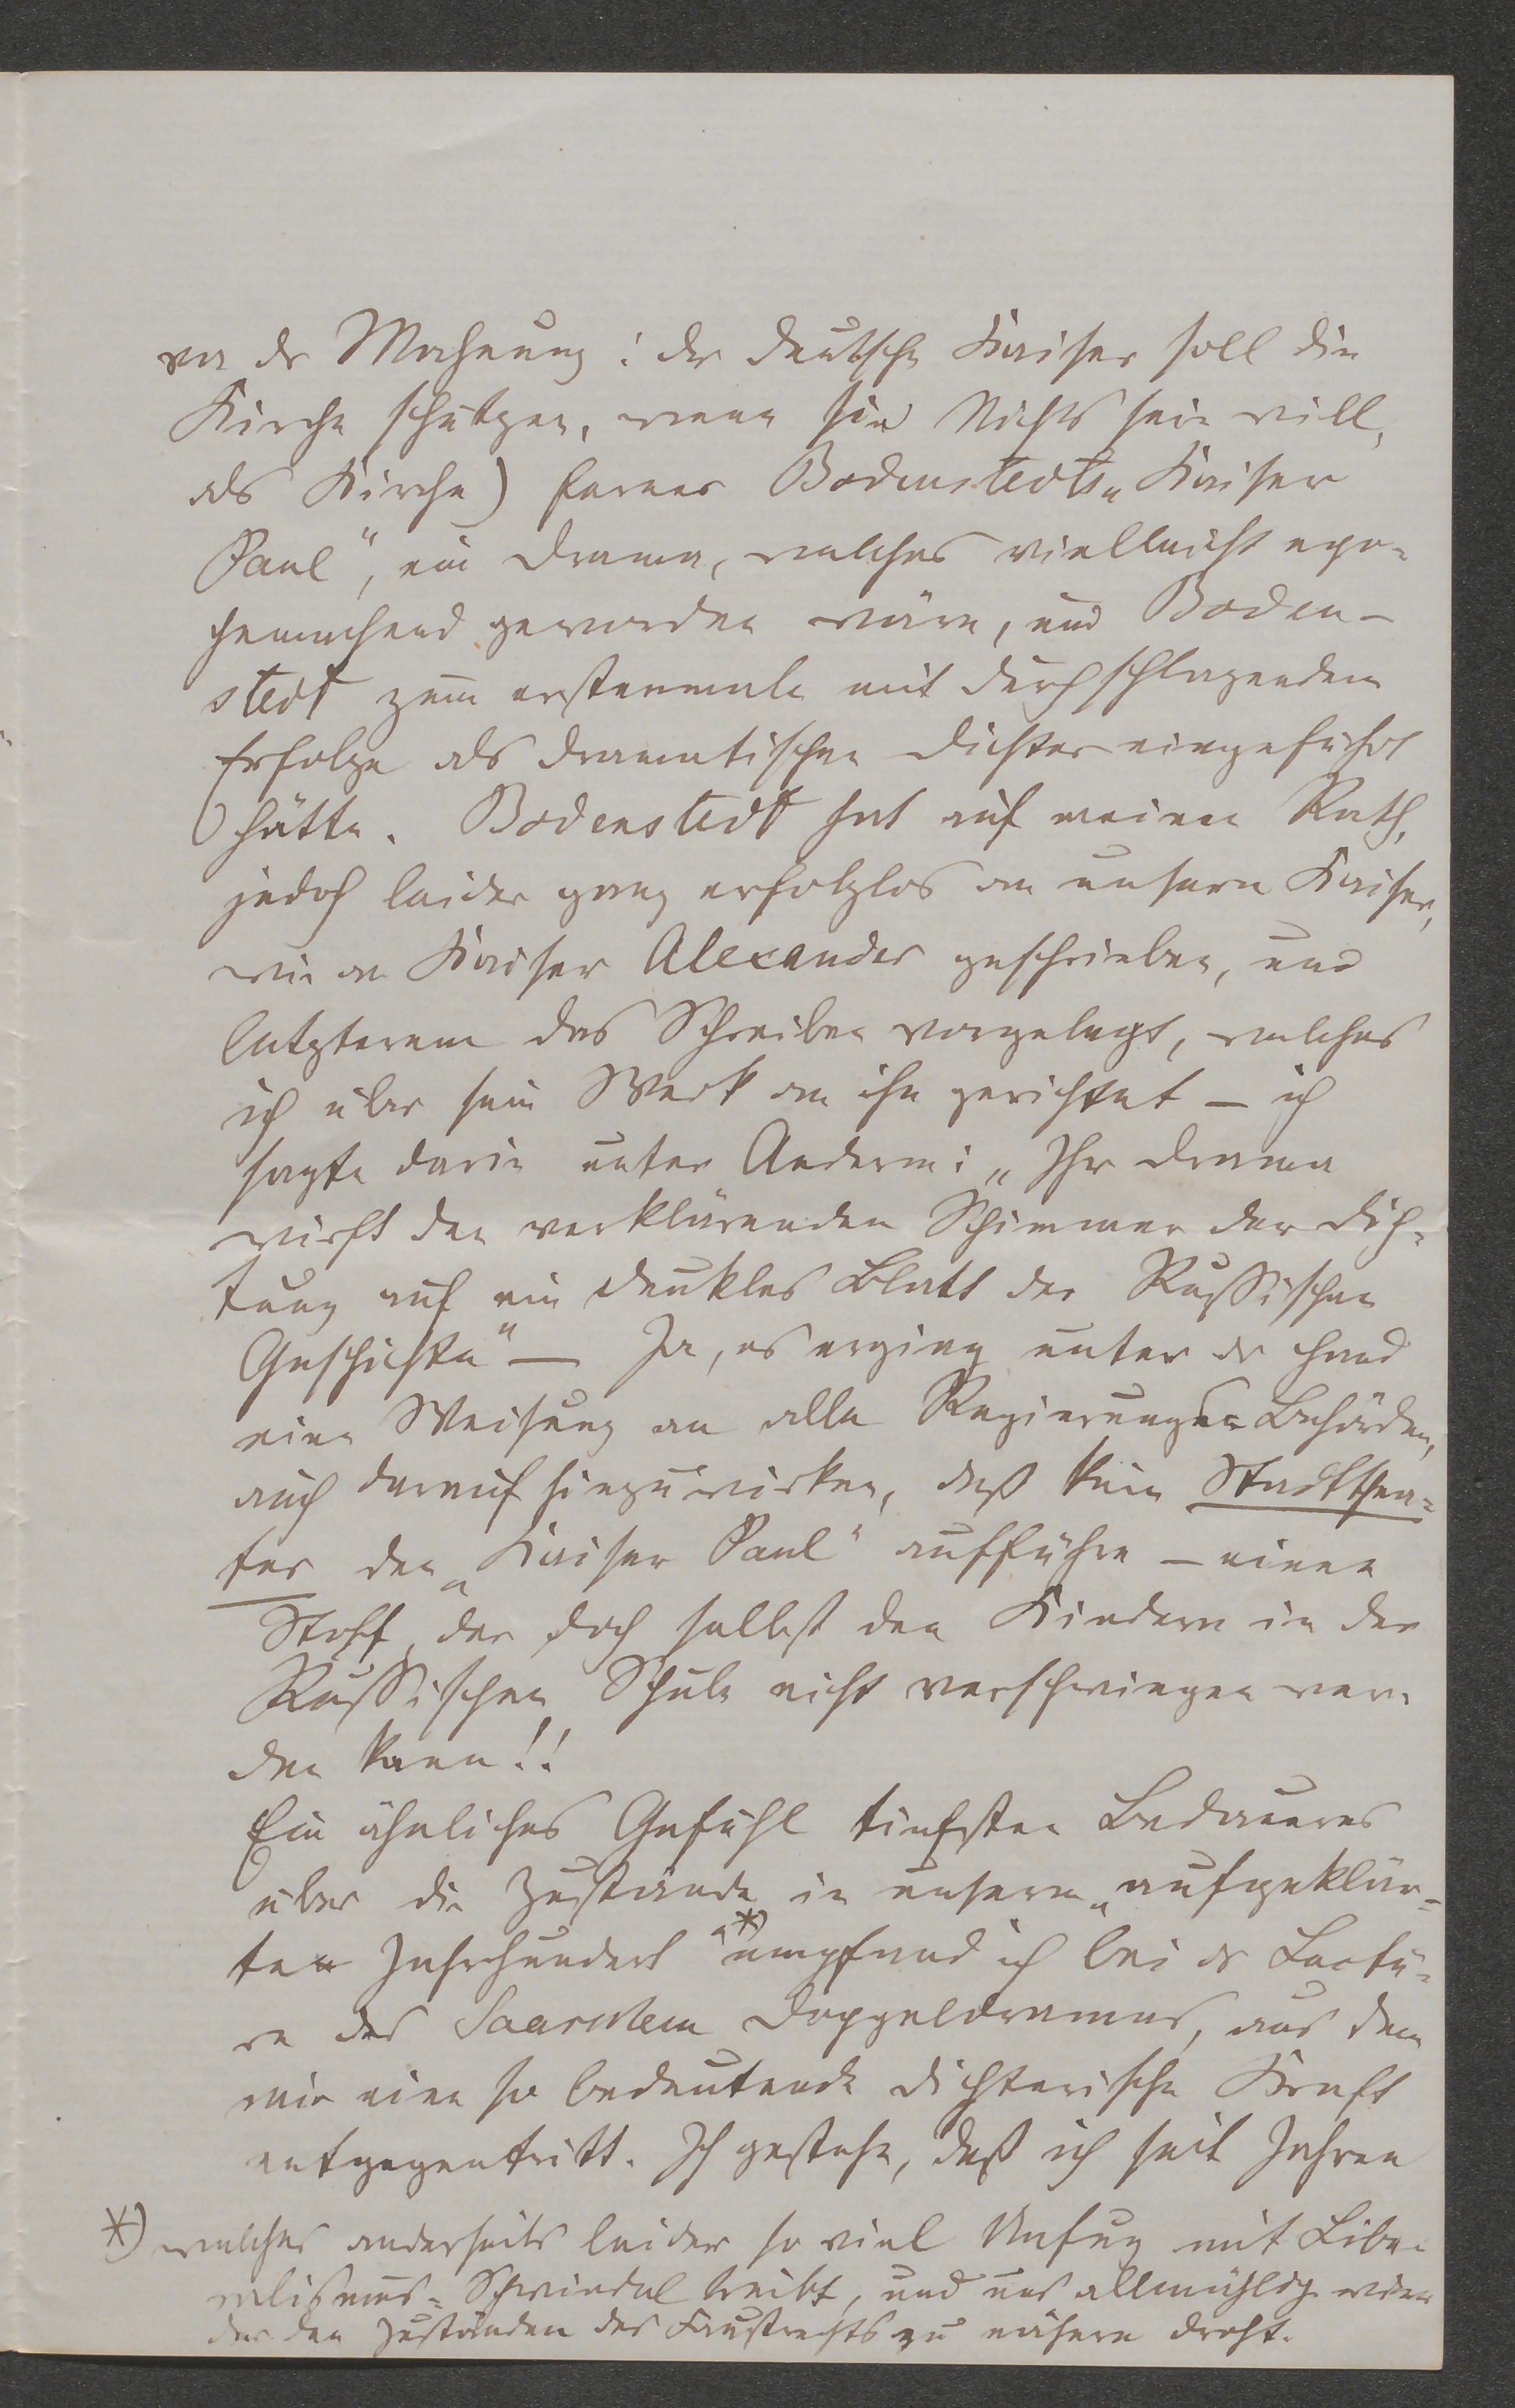 vor der Mahnung: der deutsche Kaiser soll die
Kirche schützen, wenn sie Nichts sein will,
als Kirche) ferner Bodenstedts „Kaiser
Paul“, ein Drama, welches vielleicht epo-
chemachend geworden wäre, und Boden-
stedt zum erstenmale mit durchschlagendem
Erfolge als dramatischen Dichter eingeführt
hätte. Bodenstedt hat auf meinen Rath,
jedoch leider ganz erfolglos an unsern Kaiser,
wie an Kaiser Alexander geschrieben, und
letzterem das Schreiben vorgelegt, welches
ich über sein Werk an ihn gerichtet – ich
sagte darin unter Anderm: „Ihr Drama
wirft den verklärenden Schimmer der Dich-
tung auf ein dunkles Blatt der Russischen
Geschichte“ – Ja, es erging unter der Hand
eine Weisung an alle Regierungs-Behörden,
auch darauf hinzuwirken, daß kein Stadtthea-
ter den „Kaiser Paul“ aufführe – einen
Stoff, der doch selbst den Kindern in der
Russischen Schule nicht verschwiegen wer-
den kann!!
Ein ähnliches Gefühl tiefsten Bedauerns
über die Zustände in unserm „aufgeklär-
ten Jahrhundert“ *) empfand ich bei der Lectü-
re des Saar'schen Doppeldramas, aus dem
mir eine so bedeutende dichterische Kraft
entgegentritt. Ich gestehe, daß ich seit Jahren
*) welches anderseits leider so viel Unfug mit Libe-
ralismus-Schwindel treibt, und uns allmählig wie-
der den Zuständen des Faustrechts zu nähern droht.